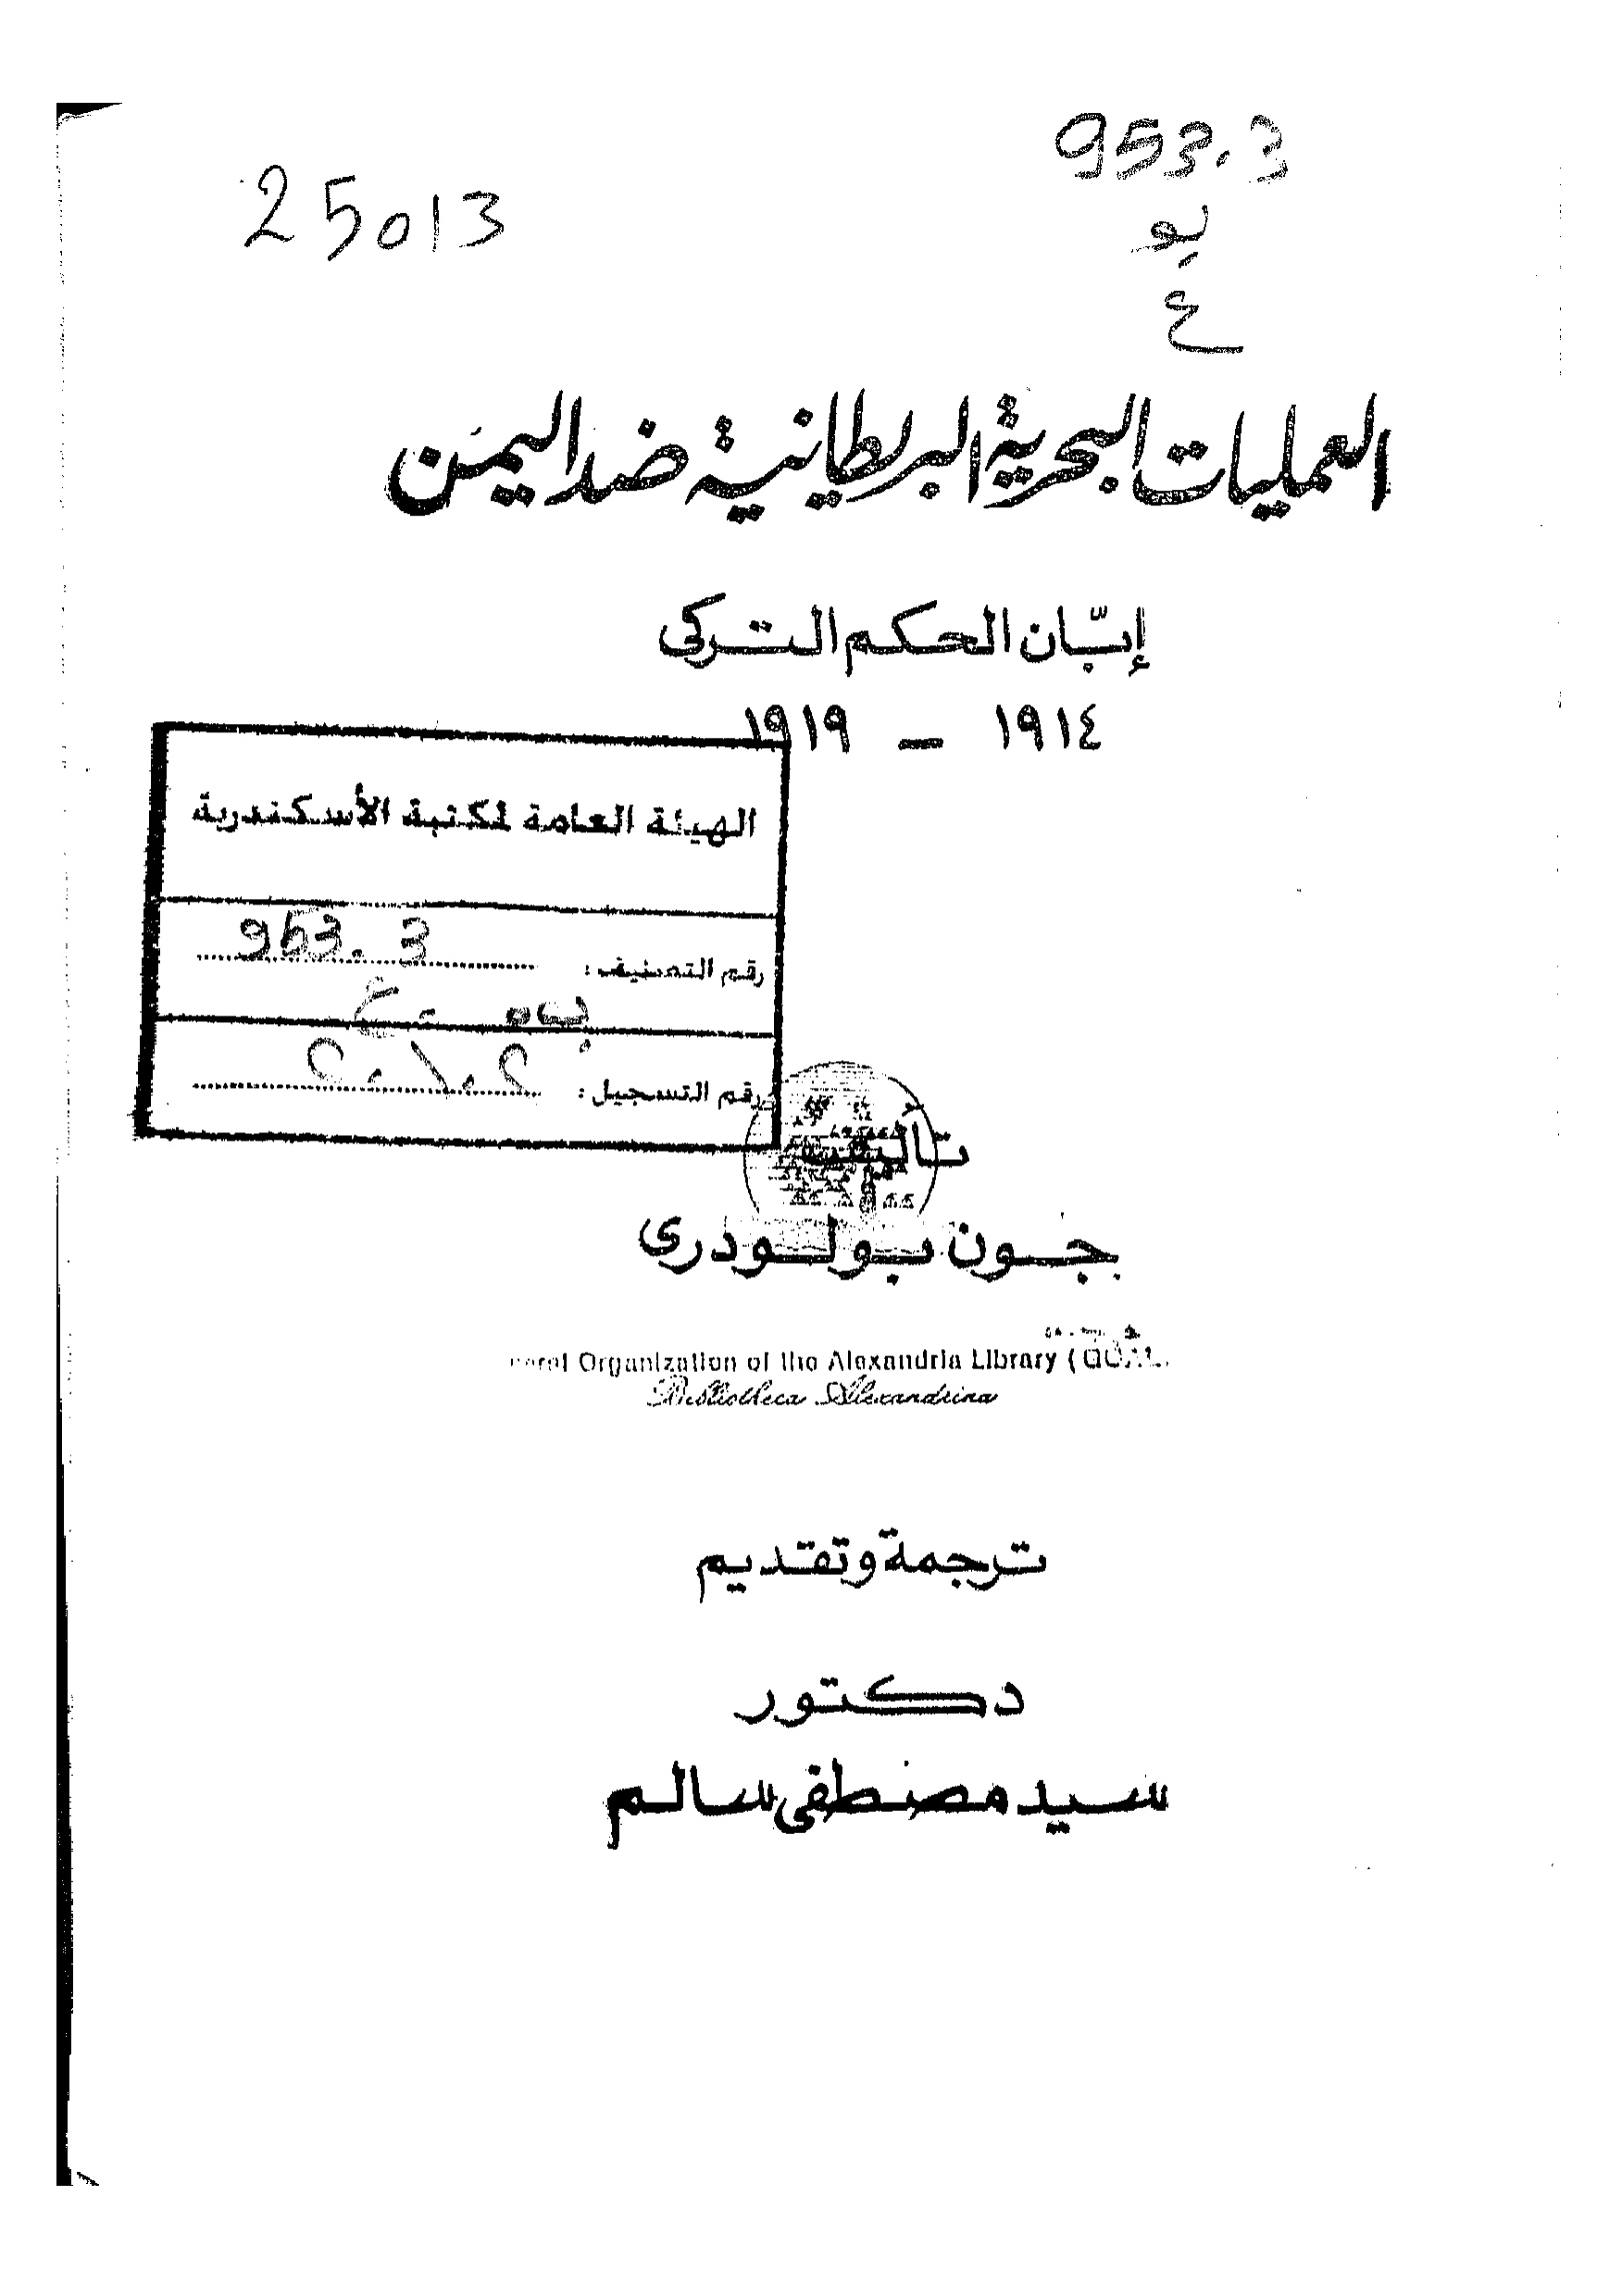 953.3
25013
بو
ع
العمليات البحرية البريطانية ضد اليمن
إبّان الحكم التركى
١٩١٤ – ١٩١٩
الهيئة العامة لمكتبة الأسكندرية
رقم التصنيف : 953.3
رقم التسجيل :
تأليف
جون بولودرى
Organization of the Alexandria Library (GOAL
Bibliotheca Alexandrina
ترجمة وتقديم
دكتور
سيد مصطفى سالم